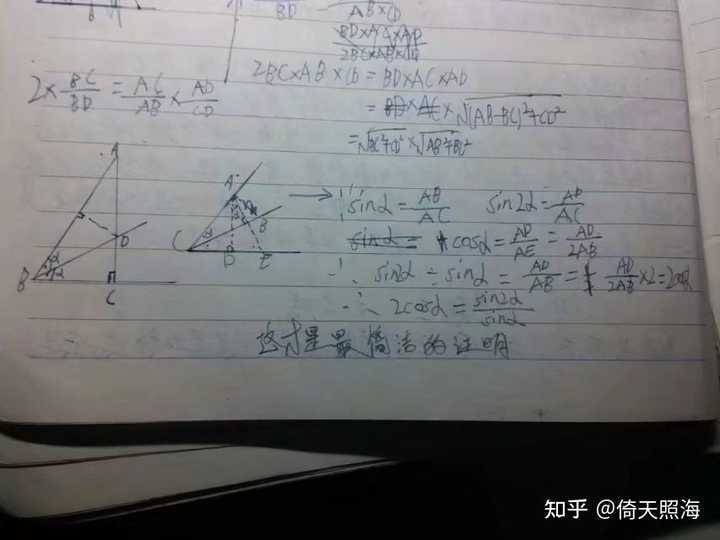 BD AB×CD
BD×AC×AD
2BC×AB×CD
2BC×AB×CD = BD×AC×AD
2×BC/BD = AC/AB × AD/CD
= BD×AC×√(AB-BC)²+CD²
A
D
B
α
C
A
α
B
C
D
E
→ ∵ sinα = AB/AC sin2α = AD/AC
sinα = cosα = AD/AE = AD/2AB
∴ sin2α ÷ sinα = AD/AB = AD/2AB ×2 = 2cosα
∴ 2cosα = sin2α/sinα
这才是最简洁的证明
知乎 @倚天照海